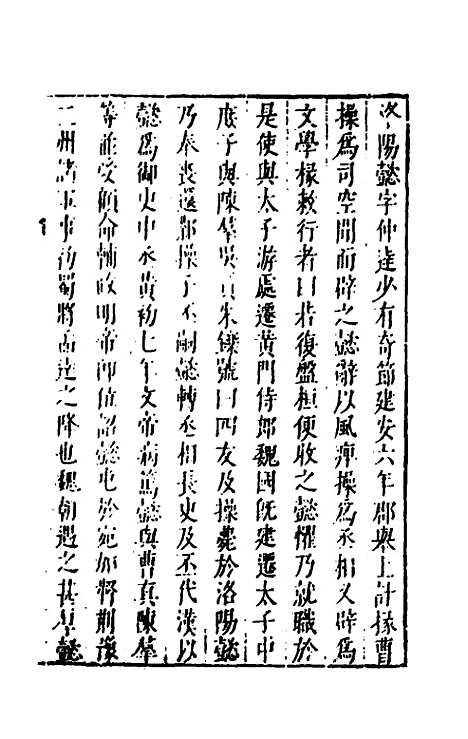 洛陽懿字仲達少有奇節建安六年郡舉上計掾曹
操爲司空聞而辟之懿辭以風痺操爲丞相又辟爲
文學掾敕行者曰若復盤桓便收之懿懼乃就職於
是使與太子游處遷黃門侍郎魏國旣建遷太子中
庶子與陳羣吳質朱鑠號曰四友及操薨於洛陽懿
乃奉喪還鄴操子丕嗣懿轉丞相長史及丕代漢以
懿爲御史中丞黃初七年文帝病篤懿與曹眞陳羣
等並受顧命輔政明帝卽位詔懿屯於宛加督荆豫
二州諸軍事初蜀將孟達之降也魏朝遇之甚厚懿